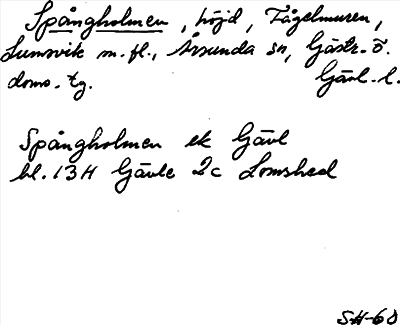 Spångholmen, höjd, Fågelmuren,
Lumsvik m.fl., Årsunda sn, Gästr. ö.
doms. tg. Gävl. l.
Spångholmen ek Gävl
bl. 13H Gävle 2c Lomshed
SH-60